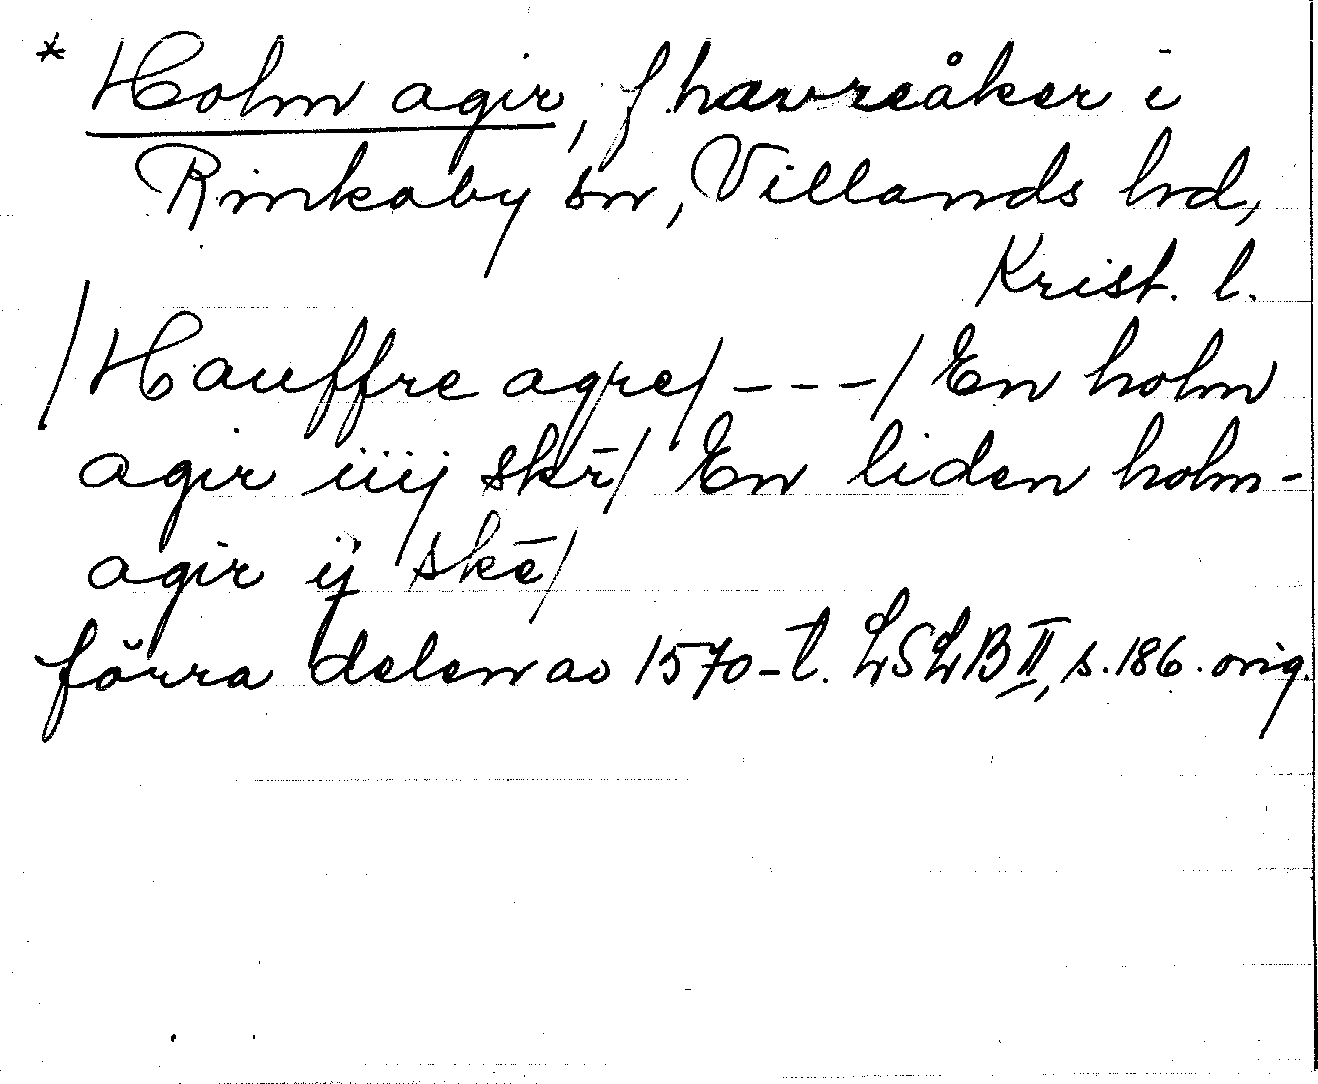 * Holm agir, f havreåker i
Rinkaby sn, Villands hd,
Krist. l.
/Hauffre agre/ --- / En holm
agir iiij skē/ En liden holm-
agir ij skē/
förra delen av 1570-t. LSLB II, s. 186. orig.